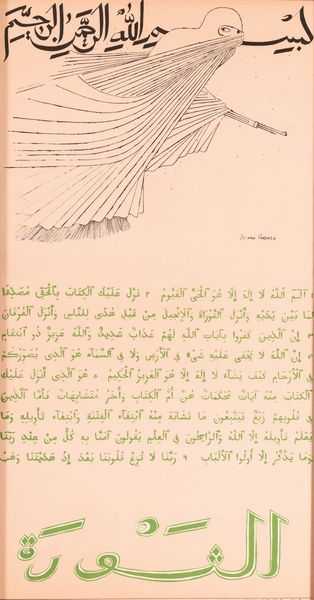 بسم الله الرحمن الرحيم
الـم الله لا إله إلا هو الحي القيوم ٢ نزل عليك الكتاب بالحق مصدقا
لما بين يديه وأنزل التوراة والإنجيل من قبل هدى للناس وأنزل الفرقان
٣ إن الذين كفروا بآيات الله لهم عذاب شديد والله عزيز ذو انتقام
إن الله لا يخفى عليه شيء في الأرض ولا في السماء هو الذي يصوركم
في الأرحام كيف يشاء لا إله إلا هو العزيز الحكيم ٥ هو الذي أنزل عليك
الكتاب منه آيات محكمات هن أم الكتاب وأخر متشابهات فأما الذين
في قلوبهم زيغ فيتبعون ما تشابه منه ابتغاء الفتنة وابتغاء تأويله وما
يعلم تأويله إلا الله والراسخون في العلم يقولون آمنا به كل من عند ربنا
وما يذكر إلا أولوا الألباب ٦ ربنا لا تزغ قلوبنا بعد إذ هديتنا وهب
الثورة